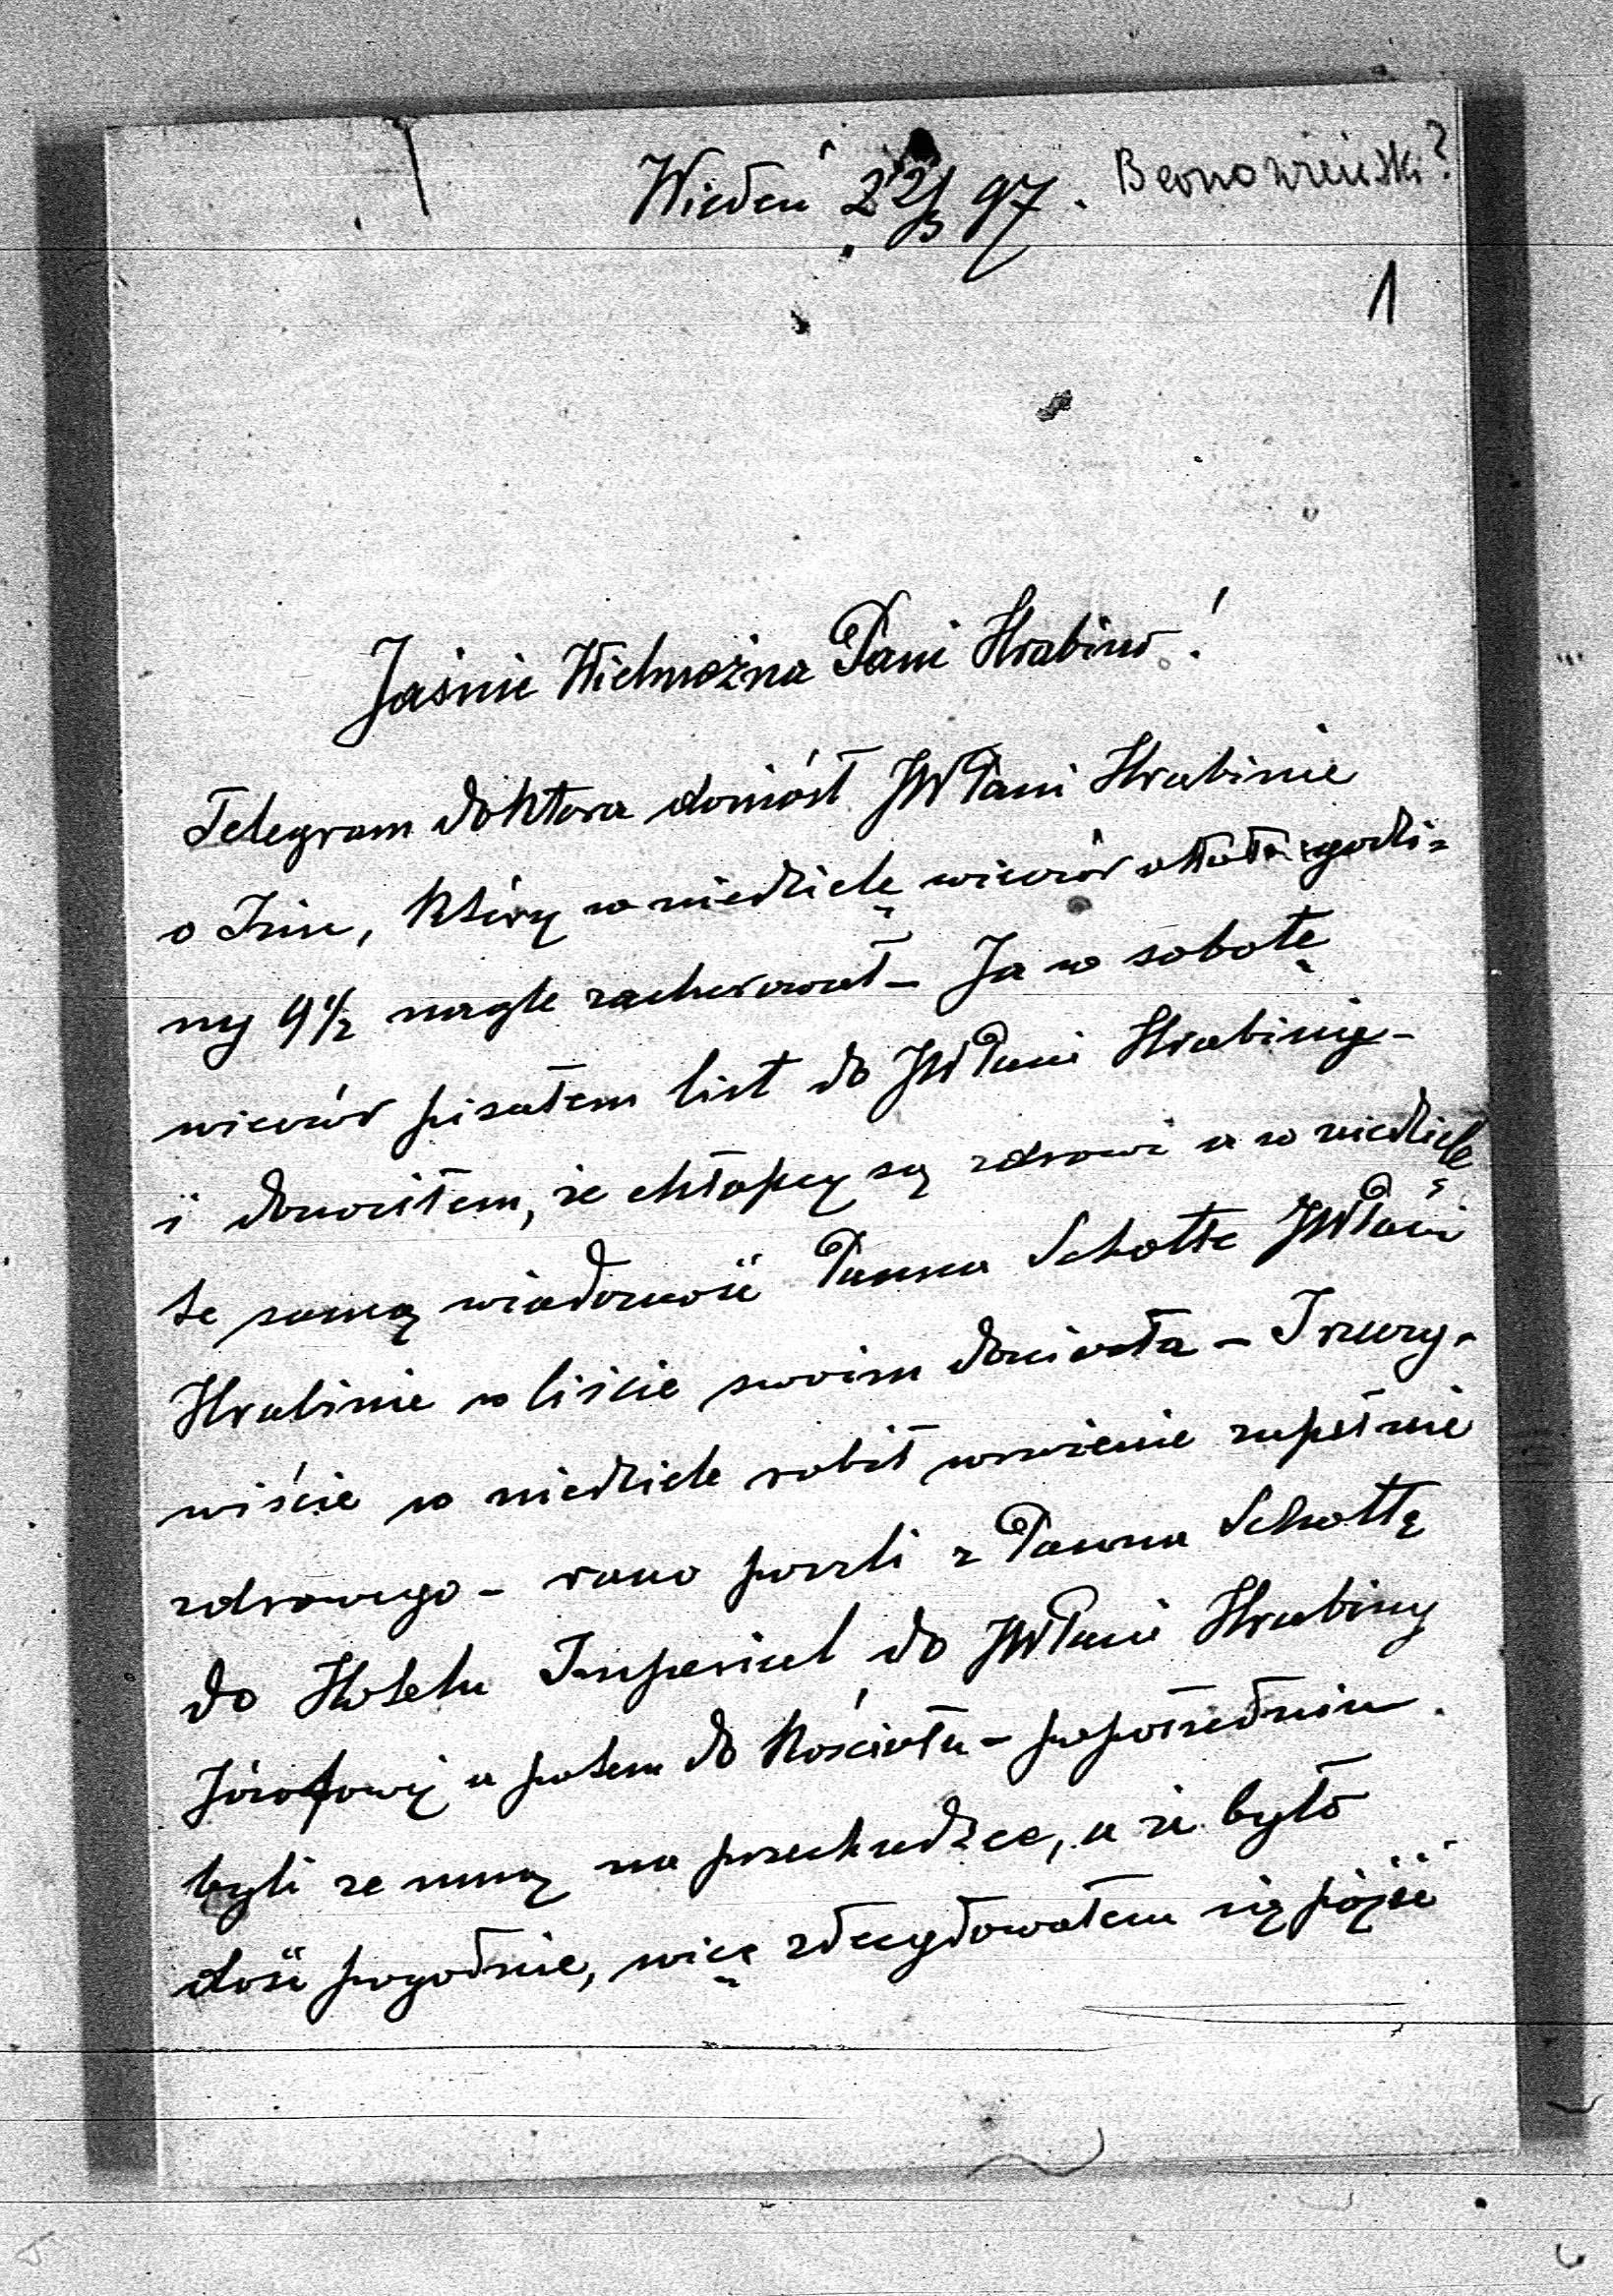 Wiedeń 22/3 97.
1
Jaśnie Wielmożna Pani Hrabino!
Telegram doktora doniósł JWPani Hrabinie
o Iziu, który w niedzielę wieczór około godzi-
ny 9 1/2 nagle zachorował – Ja w sobotę
wieczór pisałem list do JWPani Hrabiny –
i donosiłem, że chłopcy są zdrowi a w niedzielę
tę samą wiadomość Panna Schotte JWPani
Hrabinie w liście swoim doniosła – I rzeczy-
wiście w niedziele robił wrażenie zupełnie
zdrowego – rano poszli z Panną Schottą
do Hotelu Imperial do JWPani Hrabiny
Józefowej a potem do Kościoła – popołudniu
byli ze mną na przechadzce, a że było
dość pogodnie, więc zdecydowałem się pójść